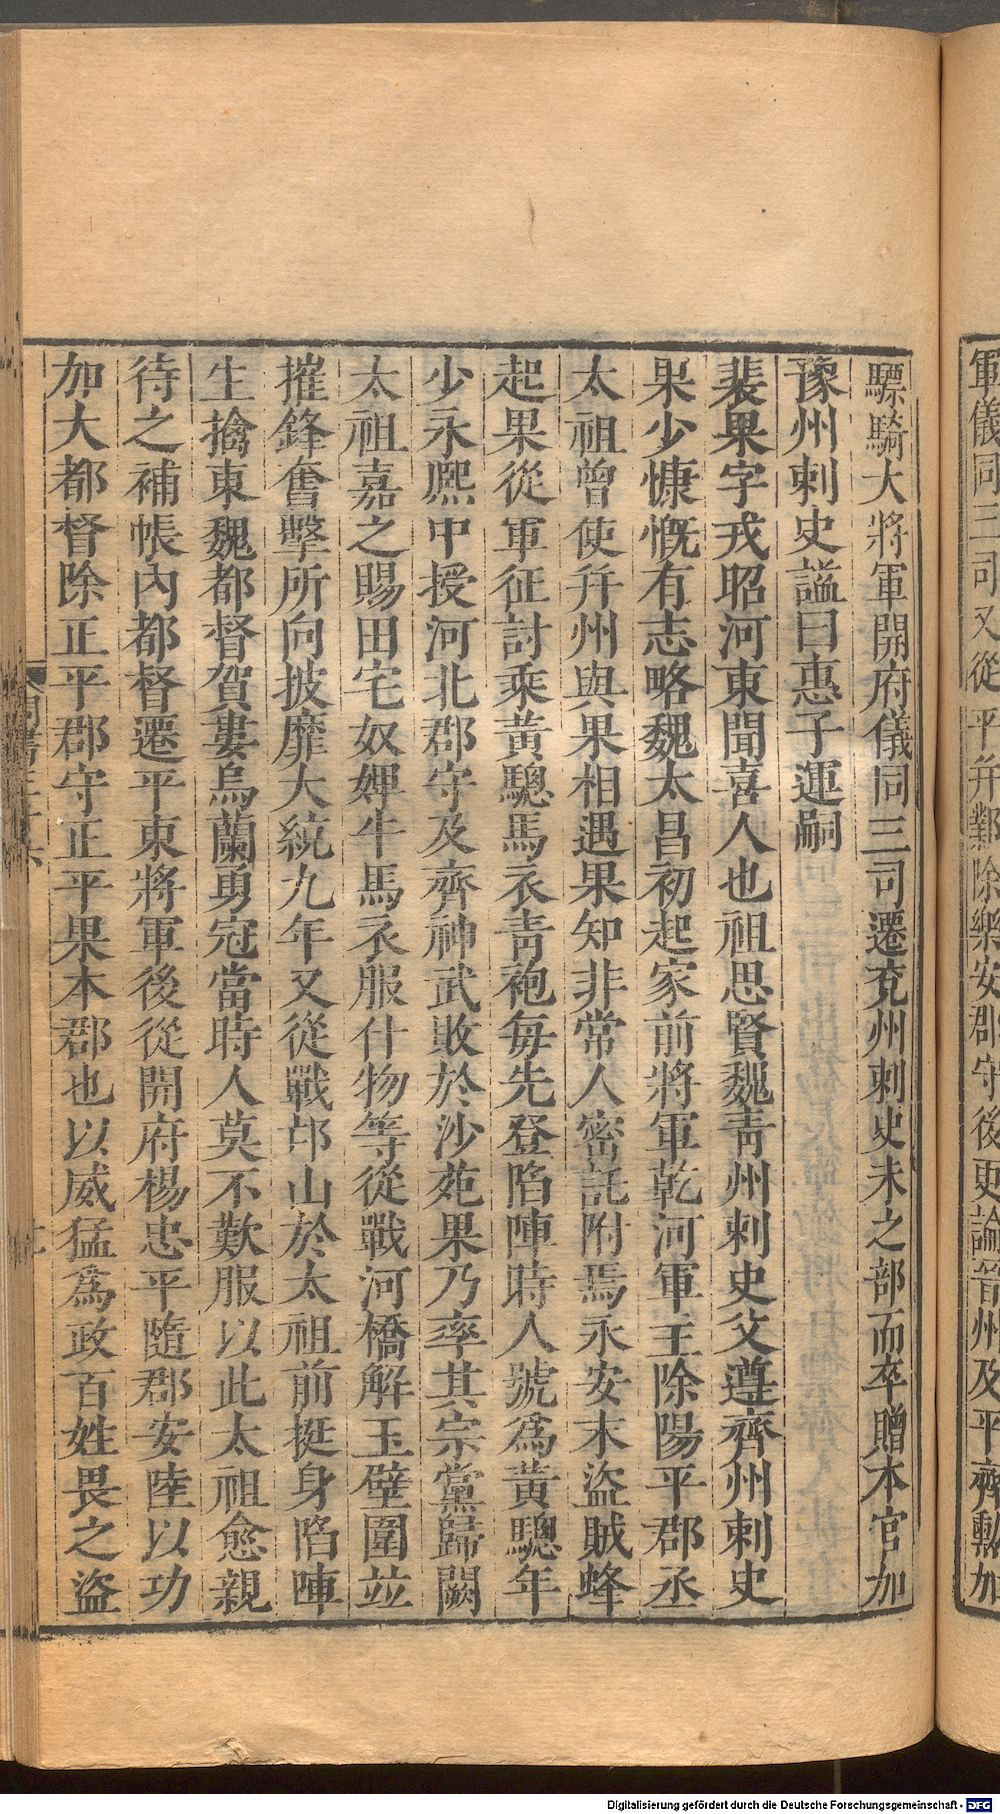 軍儀同三司又從平弁鄴除樂安郡守後更論晉州及平齊勲加
驃騎大將軍開府儀同三司遷兖州刺史未之部而卒贈本官加
豫州刺史謚曰惠子運嗣
裴果字戎昭河東聞喜人也祖思賢魏青州刺史父遵齊州刺史
果少慷慨有志略魏太昌初起家前將軍乾河軍主除陽平郡丞
太祖曾使幷州與果相遇果知非常人密託附焉永安末盜賊蜂
起果從軍征討乘黃驄馬衣青袍每先登陷陣時人號為黃驄年
少永熈中授河北郡守及齊神武敗於沙苑果乃率其宗黨歸闕
太祖嘉之賜田宅奴婢牛馬衣服什物等從戰河橋解玉壁圍並
摧鋒奮擊所向披靡大統九年又從戰邙山於太祖前挺身陷陣
生擒東魏都督賀婁烏蘭勇冠當時人莫不歎服以此太祖愈親
待之補帳內都督遷平東將軍後從開府楊忠平隨郡安陸以功
加大都督除正平郡守正平果本郡也以威猛為政百姓畏之盜
Digitalisierung gefördert durch die Deutsche Forschungsgemeinschaft - DFG